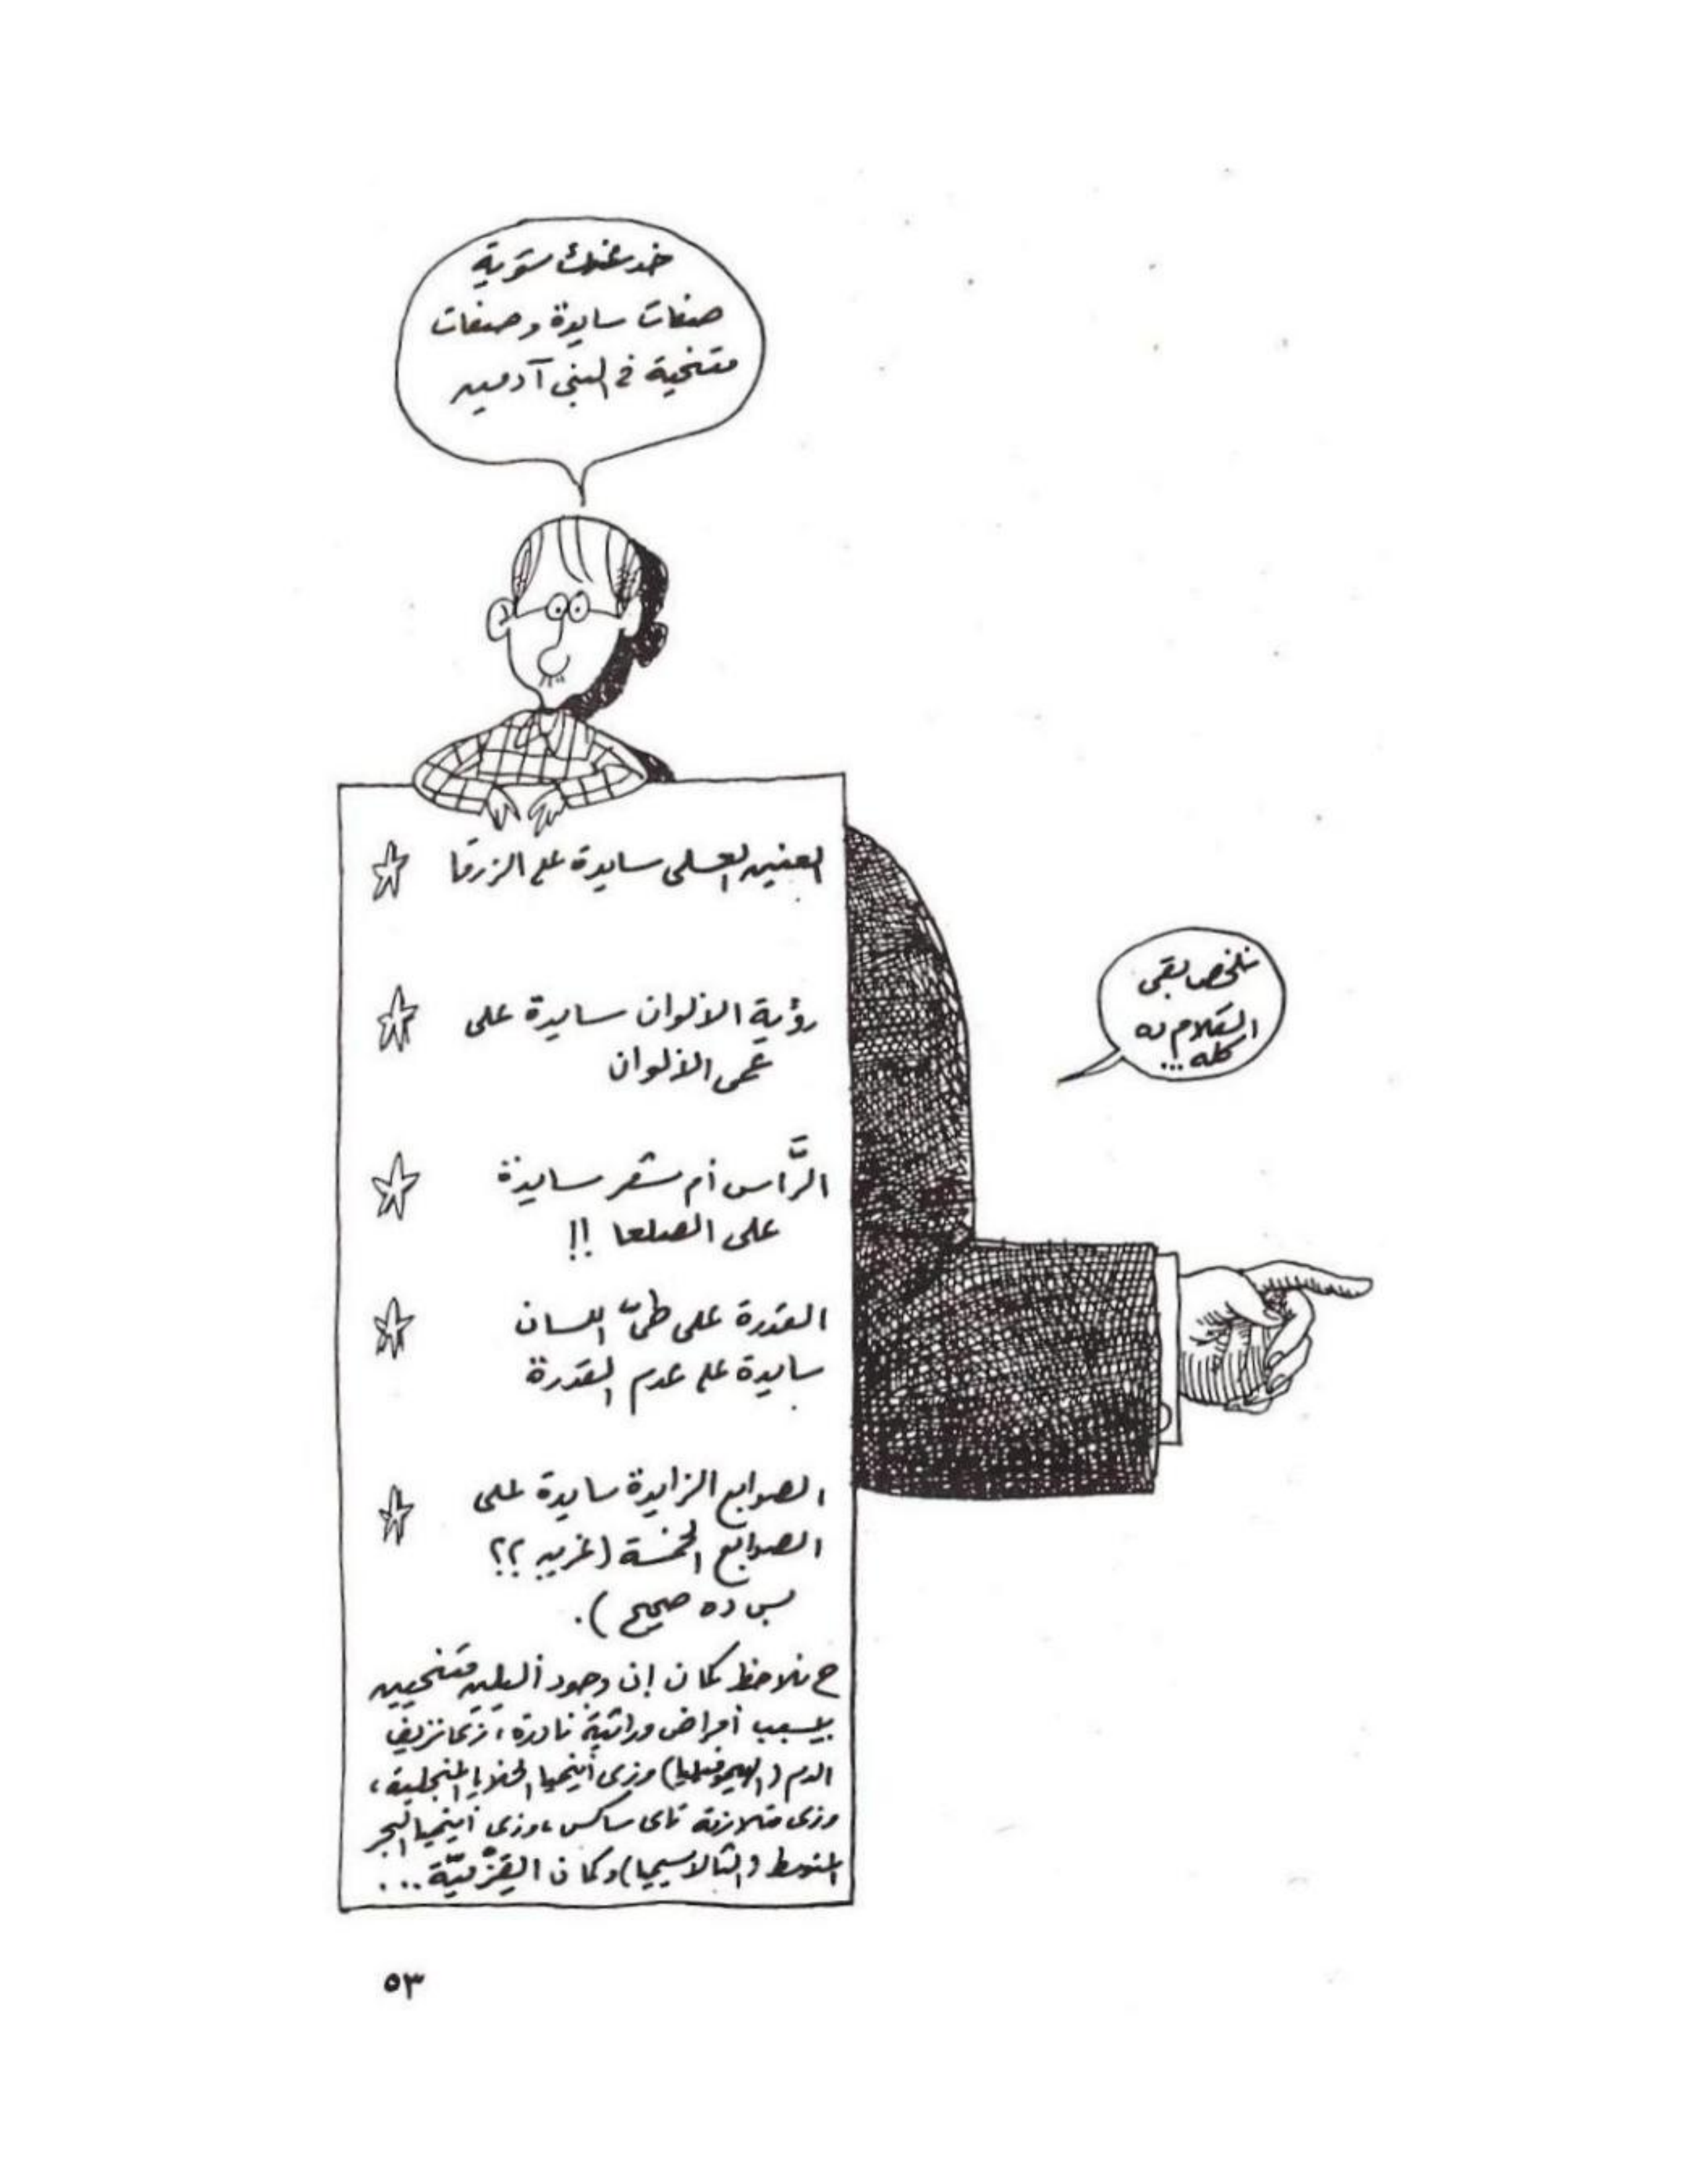 خد عندك شوية
صفات سايدة وصفات
متنحية في البني آدمين
العنين العسلى سايدة على الزرقا
رؤية الألوان سايدة على
عمى الألوان
الرَّاس أم شعر سايدة
على الصلعا !!
القدرة على طىّ اللسان
سايدة على عدم القدرة
الصوابع الزايدة سايدة على
الصوابع الخمسة (غريب ؟؟
بس ده صحيح ).
ح نلاحظ كمان إن وجود أليلين متنحيين
بيسبب أمراض وراثية نادرة، زى نزيف
الدم (الهيموفيليا) وزى أنيميا الخلايا المنجلية،
وزى متلازمة تاى ساكس، وزى أنيميا البحر
المتوسط (الثالاسيميا) وكمان القِزْمِيّة...
نلخص بقى
الكلام ده
كله...
٥٣